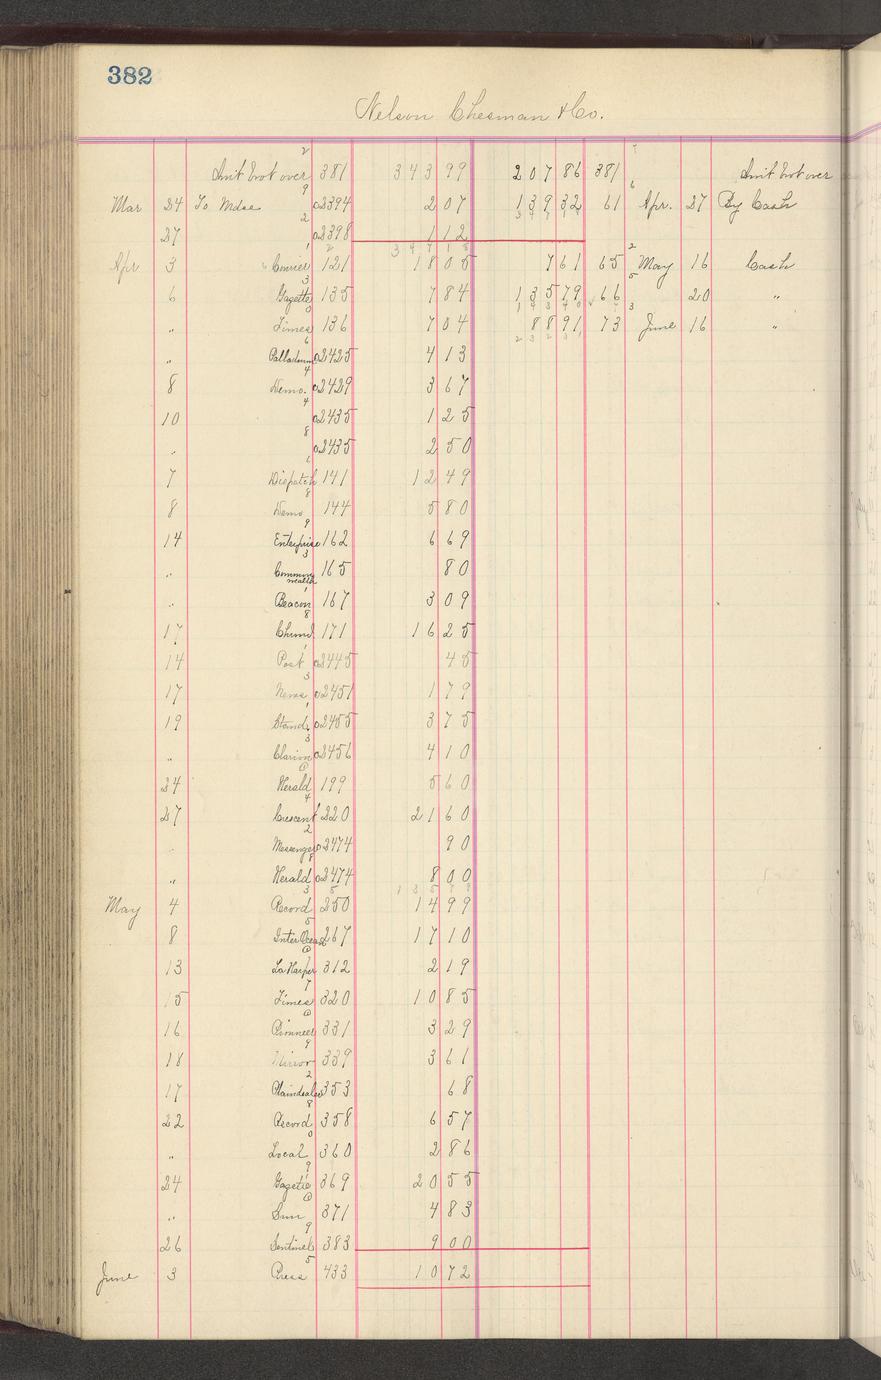 382
Nelson Chesman & Co.
Amt brot over 381 343 99 207 86 381 Amt brot over
Mar 24 To Mdse 2394 2 07 139 32 61 Apr. 27 By Cash
27 2398 1 12
Apr 3 Courier 121 18 05 7 61 65 May 16 Cash
6 Gazette 135 7 84 135 79 66 20 "
" Times 136 7 04 88 91 73 June 16 "
" Palladium 2425 4 13
8 Demo. 2429 3 67
10 2435 1 25
" 2435 2 50
7 Dispatch 141 12 49
8 Demo 144 5 80
14 Enterprise 162 6 69
" Commonwealth 165 80
" Beacon 167 3 09
17 171 16 25
14 Post 2445 45
17 News 2451 1 79
19 Stand. 2455 3 75
" Clarion 2456 4 10
24 Herald 199 5 60
27 Crescent 220 21 60
" Messenger 2474 90
" Herald 2474 8 00
May 4 Record 250 14 99
8 Inter Ocean 267 17 10
13 La Harper 312 2 19
15 Times 320 10 85
16 Pionneer 331 3 29
18 Mirror 339 3 61
17 Plaindealer 353 68
22 Record 358 6 57
" Local 360 2 86
24 Gazette 369 20 55
" Sun 371 4 83
26 Sentinel 383 9 00
June 3 Press 433 10 72